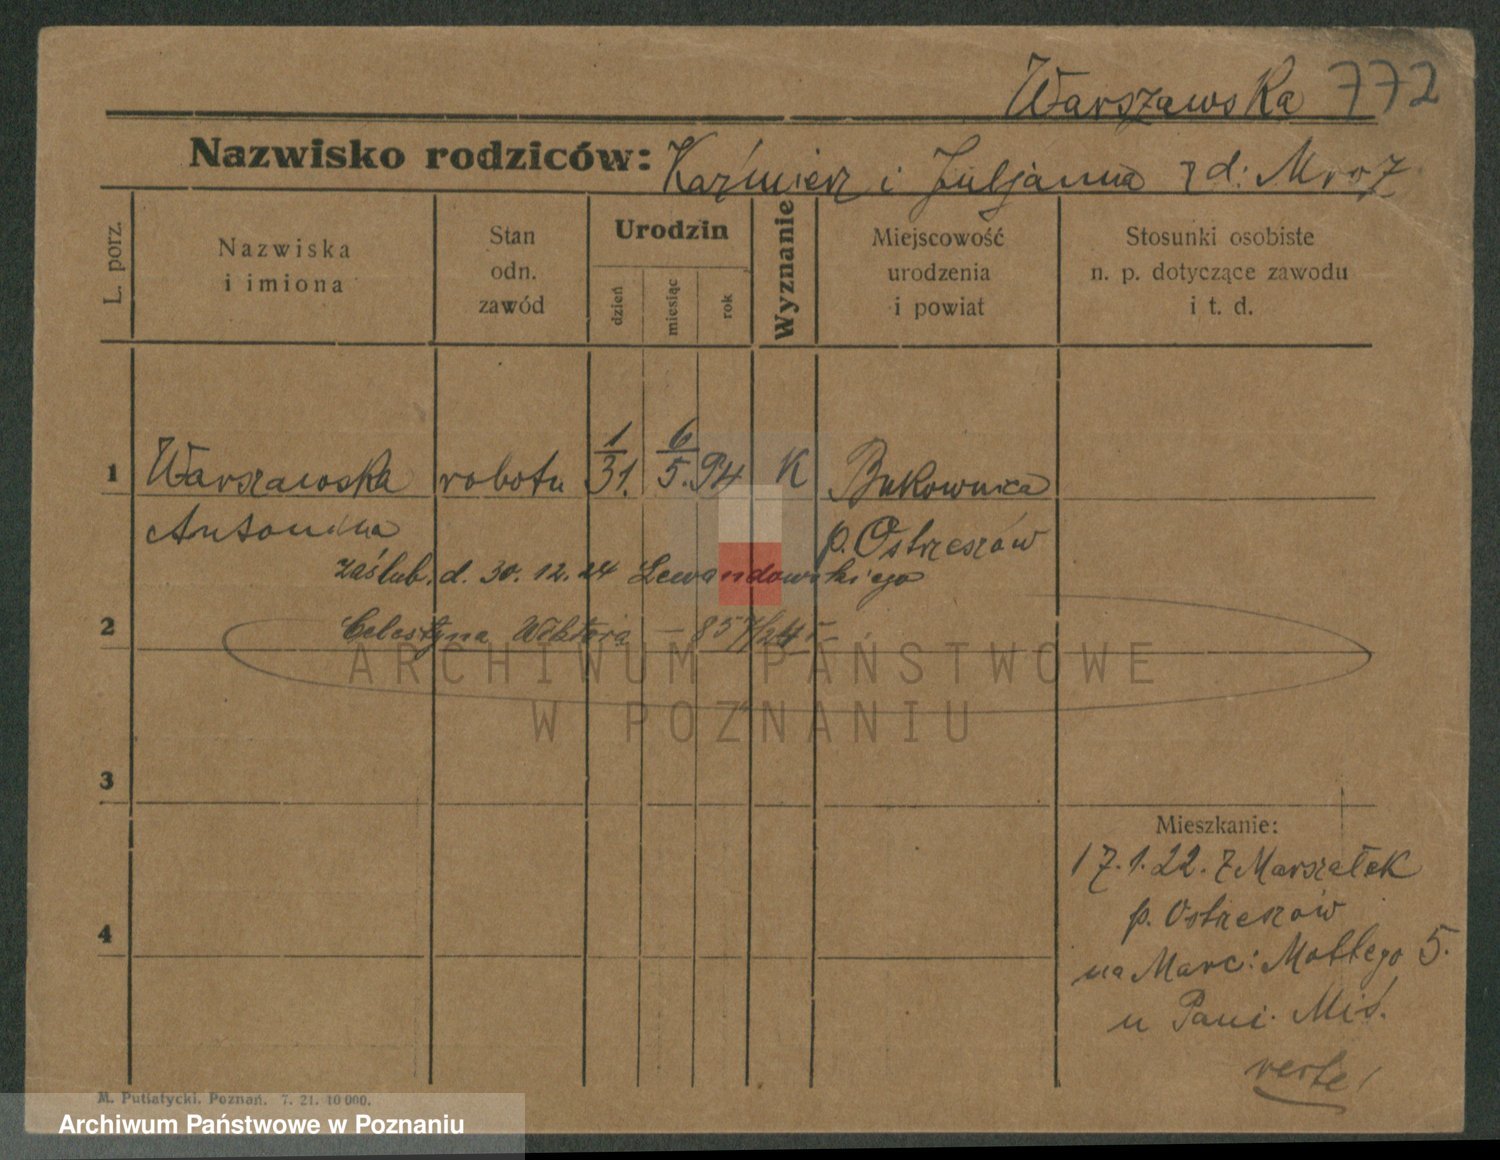 Warszawska 772
Nazwisko rodziców: Kaźmierz i Juljanna z d: Mroz
L. porz.
Nazwiska i imiona
Stan odn. zawód
Urodzin
dzień
miesiąc
rok
Wyznanie
Miejscowość urodzenia i powiat
Stosunki osobiste n. p. dotyczące zawodu i t. d.
1 Warszawska robotn 1/31. 6/5. 94 K Bukownica
Antonina p. Ostrzeszów
zaślub. d. 30. 12. 24 Lewandowskiego
2 Celestyna Wiktora — 857/24 r
ARCHIWUM PAŃSTWOWE
W POZNANIU
3
Mieszkanie:
17.1.22. z Marszałek
p. Ostrzeszów
4
na Marc: Mottego 5.
u Pani
verte
M. Putiatycki. Poznań. 7. 21. 10 000.
Archiwum Państwowe w Poznaniu